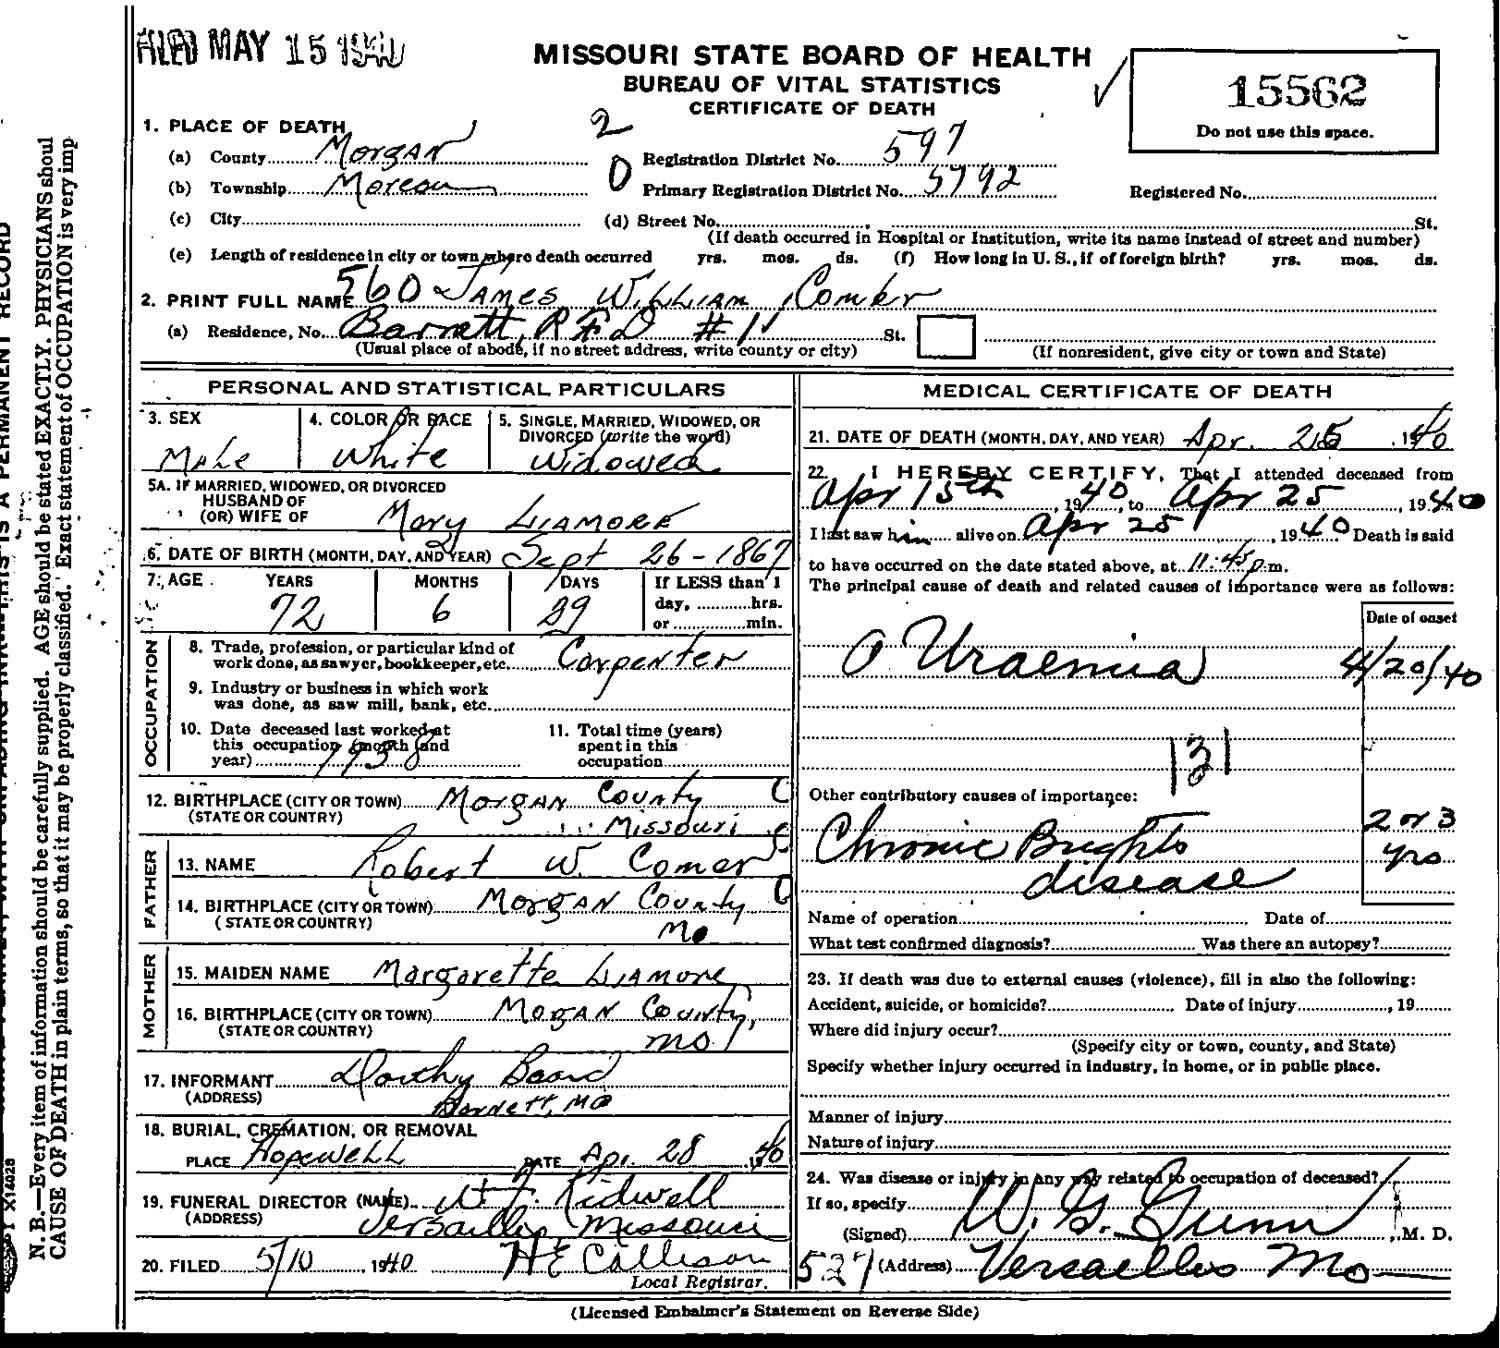 FILED MAY 15 1940
MISSOURI STATE BOARD OF HEALTH
BUREAU OF VITAL STATISTICS
CERTIFICATE OF DEATH
15562
Do not use this space.
1. PLACE OF DEATH
(a) County Morgan
2
Registration District No. 597
(b) Township Moreau
0
Primary Registration District No. 5792
Registered No.
(c) City
(d) Street No. St.
(If death occurred in Hospital or Institution, write its name instead of street and number)
(e) Length of residence in city or town where death occurred yrs. mos. ds. (f) How long in U. S., if of foreign birth? yrs. mos. ds.
2. PRINT FULL NAME 560 James William Comer
(a) Residence, No. Barnett, RFD #1 St.
(Usual place of abode, if no street address, write county or city)
(If nonresident, give city or town and State)
PERSONAL AND STATISTICAL PARTICULARS
3. SEX
Male
4. COLOR OR RACE
White
5. SINGLE, MARRIED, WIDOWED, OR
DIVORCED (write the word)
Widowed
5A. IF MARRIED, WIDOWED, OR DIVORCED
HUSBAND OF
(OR) WIFE OF Mary Liamore
6. DATE OF BIRTH (MONTH, DAY, AND YEAR) Sept 26-1867
7. AGE YEARS MONTHS DAYS If LESS than 1
72 6 29 day, hrs.
or min.
OCCUPATION
8. Trade, profession, or particular kind of
work done, as sawyer, bookkeeper, etc. Carpenter
9. Industry or business in which work
was done, as saw mill, bank, etc.
10. Date deceased last worked at
this occupation (month and
year) 1938
11. Total time (years)
spent in this
occupation
12. BIRTHPLACE (CITY OR TOWN) Morgan County
(STATE OR COUNTRY) Missouri
FATHER
13. NAME Robert W. Comer
14. BIRTHPLACE (CITY OR TOWN) Morgan County
(STATE OR COUNTRY) Mo
MOTHER
15. MAIDEN NAME Margarette Liamore
16. BIRTHPLACE (CITY OR TOWN) Morgan County,
(STATE OR COUNTRY) Mo
17. INFORMANT Dorthy Board
(ADDRESS) Barnett, Mo
18. BURIAL, CREMATION, OR REMOVAL
PLACE Hopewell DATE Apr. 28 1940
19. FUNERAL DIRECTOR (NAME) W F. Kidwell
(ADDRESS) Versailles, Missouri
20. FILED 5/10 1940 H E Callison
Local Registrar.
MEDICAL CERTIFICATE OF DEATH
21. DATE OF DEATH (MONTH, DAY, AND YEAR) Apr. 25, 1940
22. I HEREBY CERTIFY, That I attended deceased from
Apr 15th, 1940, to Apr 25, 1940
I last saw him alive on Apr 25, 1940 Death is said
to have occurred on the date stated above, at 11:45 p.m.
The principal cause of death and related causes of importance were as follows:
Date of onset
Uraemia 4/20/40
131
Other contributory causes of importance:
Chronic Brights 2 or 3
disease yrs
Name of operation Date of
What test confirmed diagnosis? Was there an autopsy?
23. If death was due to external causes (violence), fill in also the following:
Accident, suicide, or homicide? Date of injury, 19
Where did injury occur?
(Specify city or town, county, and State)
Specify whether injury occurred in industry, in home, or in public place.
Manner of injury
Nature of injury
24. Was disease or injury in any way related to occupation of deceased?
If so, specify
(Signed) W. G. Gunn, M. D.
527 (Address) Versailles Mo
(Licensed Embalmer's Statement on Reverse Side)
N. B.—Every item of information should be carefully supplied. AGE should be stated EXACTLY. PHYSICIANS shoul
CAUSE OF DEATH in plain terms, so that it may be properly classified. Exact statement of OCCUPATION is very imp
THIS IS A PERMANENT RECORD
X14028